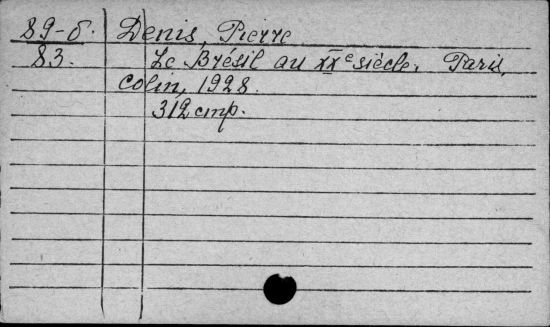 89-б. Denis, Pierre
83. Le Brésil au XXe siècle. Paris,
Colin, 1928.
312 стр.